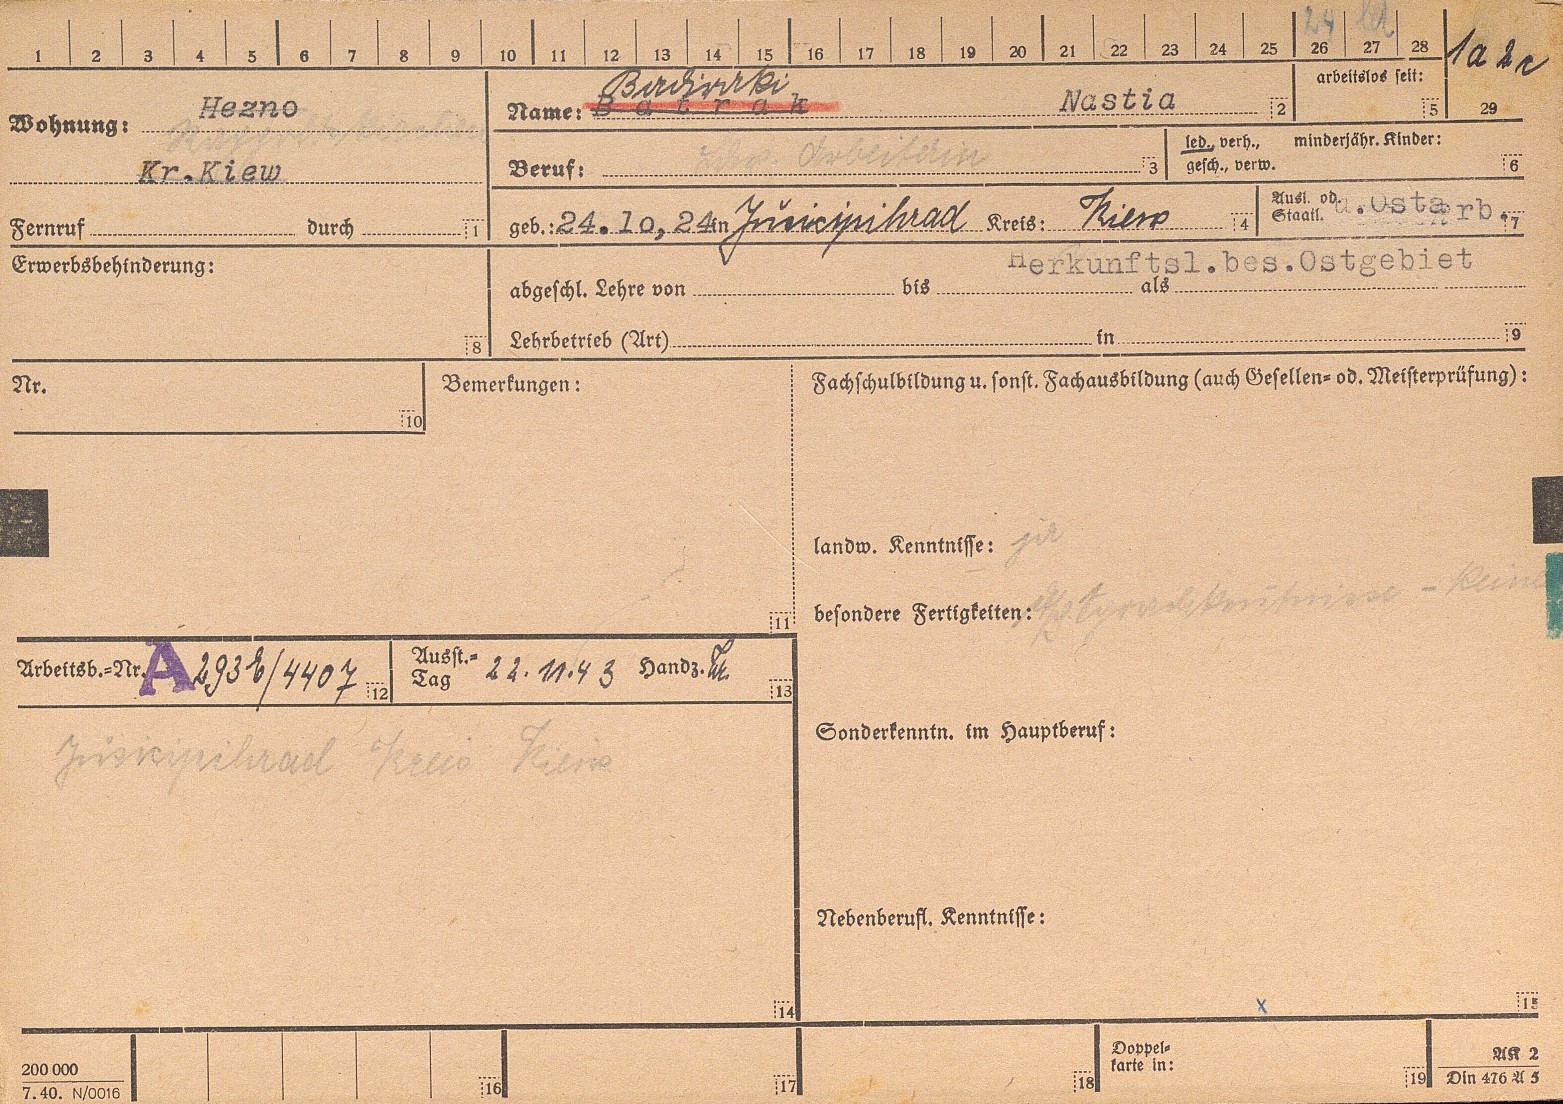 1 2 3 4 5 6 7 8 9 10 11 12 13 14 15 16 17 18 19 20 21 22 23 24 25 26 27 28 29
24
1a 2c
arbeitslos seit: 5
Wohnung: Hezno
Kr. Kiew
Name: Batrak Nastia 2
Beruf: Arbeiterin 3
led., verh., minderjähr. Kinder:
gesch., verw. 6
Fernruf durch 1
geb.: 24.10,24 in Kreis: Kiew 4
Ausl. od.
Staatl. u. Ostarb. 7
Erwerbsbehinderung: 8
Herkunftsl.bes.Ostgebiet
abgeschl. Lehre von bis als
Lehrbetrieb (Art) in 9
Nr. 10
Bemerkungen: 11
Fachschulbildung u. sonst. Fachausbildung (auch Gesellen- od. Meisterprüfung):
landw. Kenntnisse: ja
besondere Fertigkeiten: - keine
Arbeitsb.-Nr. A 293b/4407 12
Ausst.-
Tag 22.11.43 Handz. 13
Kreis Kiew
Sonderkenntn. im Hauptberuf:
Nebenberufl. Kenntnisse:
14
x
15
200 000
7. 40. N/0016
16 17 18
Doppel-
karte in: 19
AK 2
Din 476 A 5